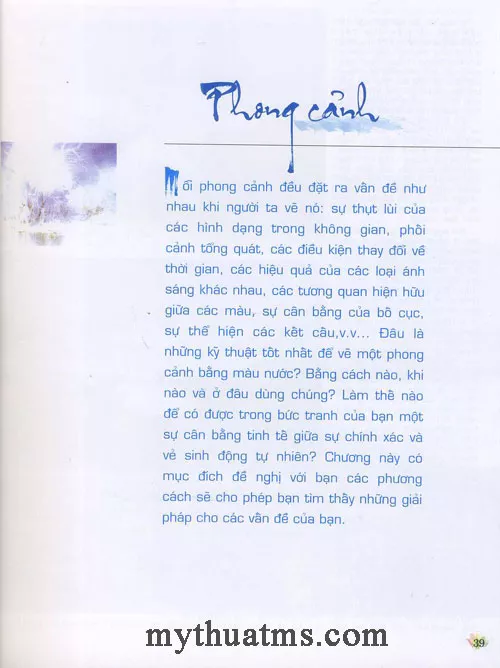 Phong cảnh
Mỗi phong cảnh đều đặt ra vấn đề như
nhau khi người ta vẽ nó: sự thụt lùi của
các hình dạng trong không gian, phối
cảnh tổng quát, các điều kiện thay đổi về
thời gian, các hiệu quả của các loại ánh
sáng khác nhau, các tương quan hiện hữu
giữa các màu, sự cân bằng của bố cục,
sự thể hiện các kết cấu,v.v... Đâu là
những kỹ thuật tốt nhất để vẽ một phong
cảnh bằng màu nước? Bằng cách nào, khi
nào và ở đâu dùng chúng? Làm thế nào
để có được trong bức tranh của bạn một
sự cân bằng tinh tế giữa sự chính xác và
vẻ sinh động tự nhiên? Chương này có
mục đích đề nghị với bạn các phương
cách sẽ cho phép bạn tìm thấy những giải
pháp cho các vấn đề của bạn.
39
mythuatms.com